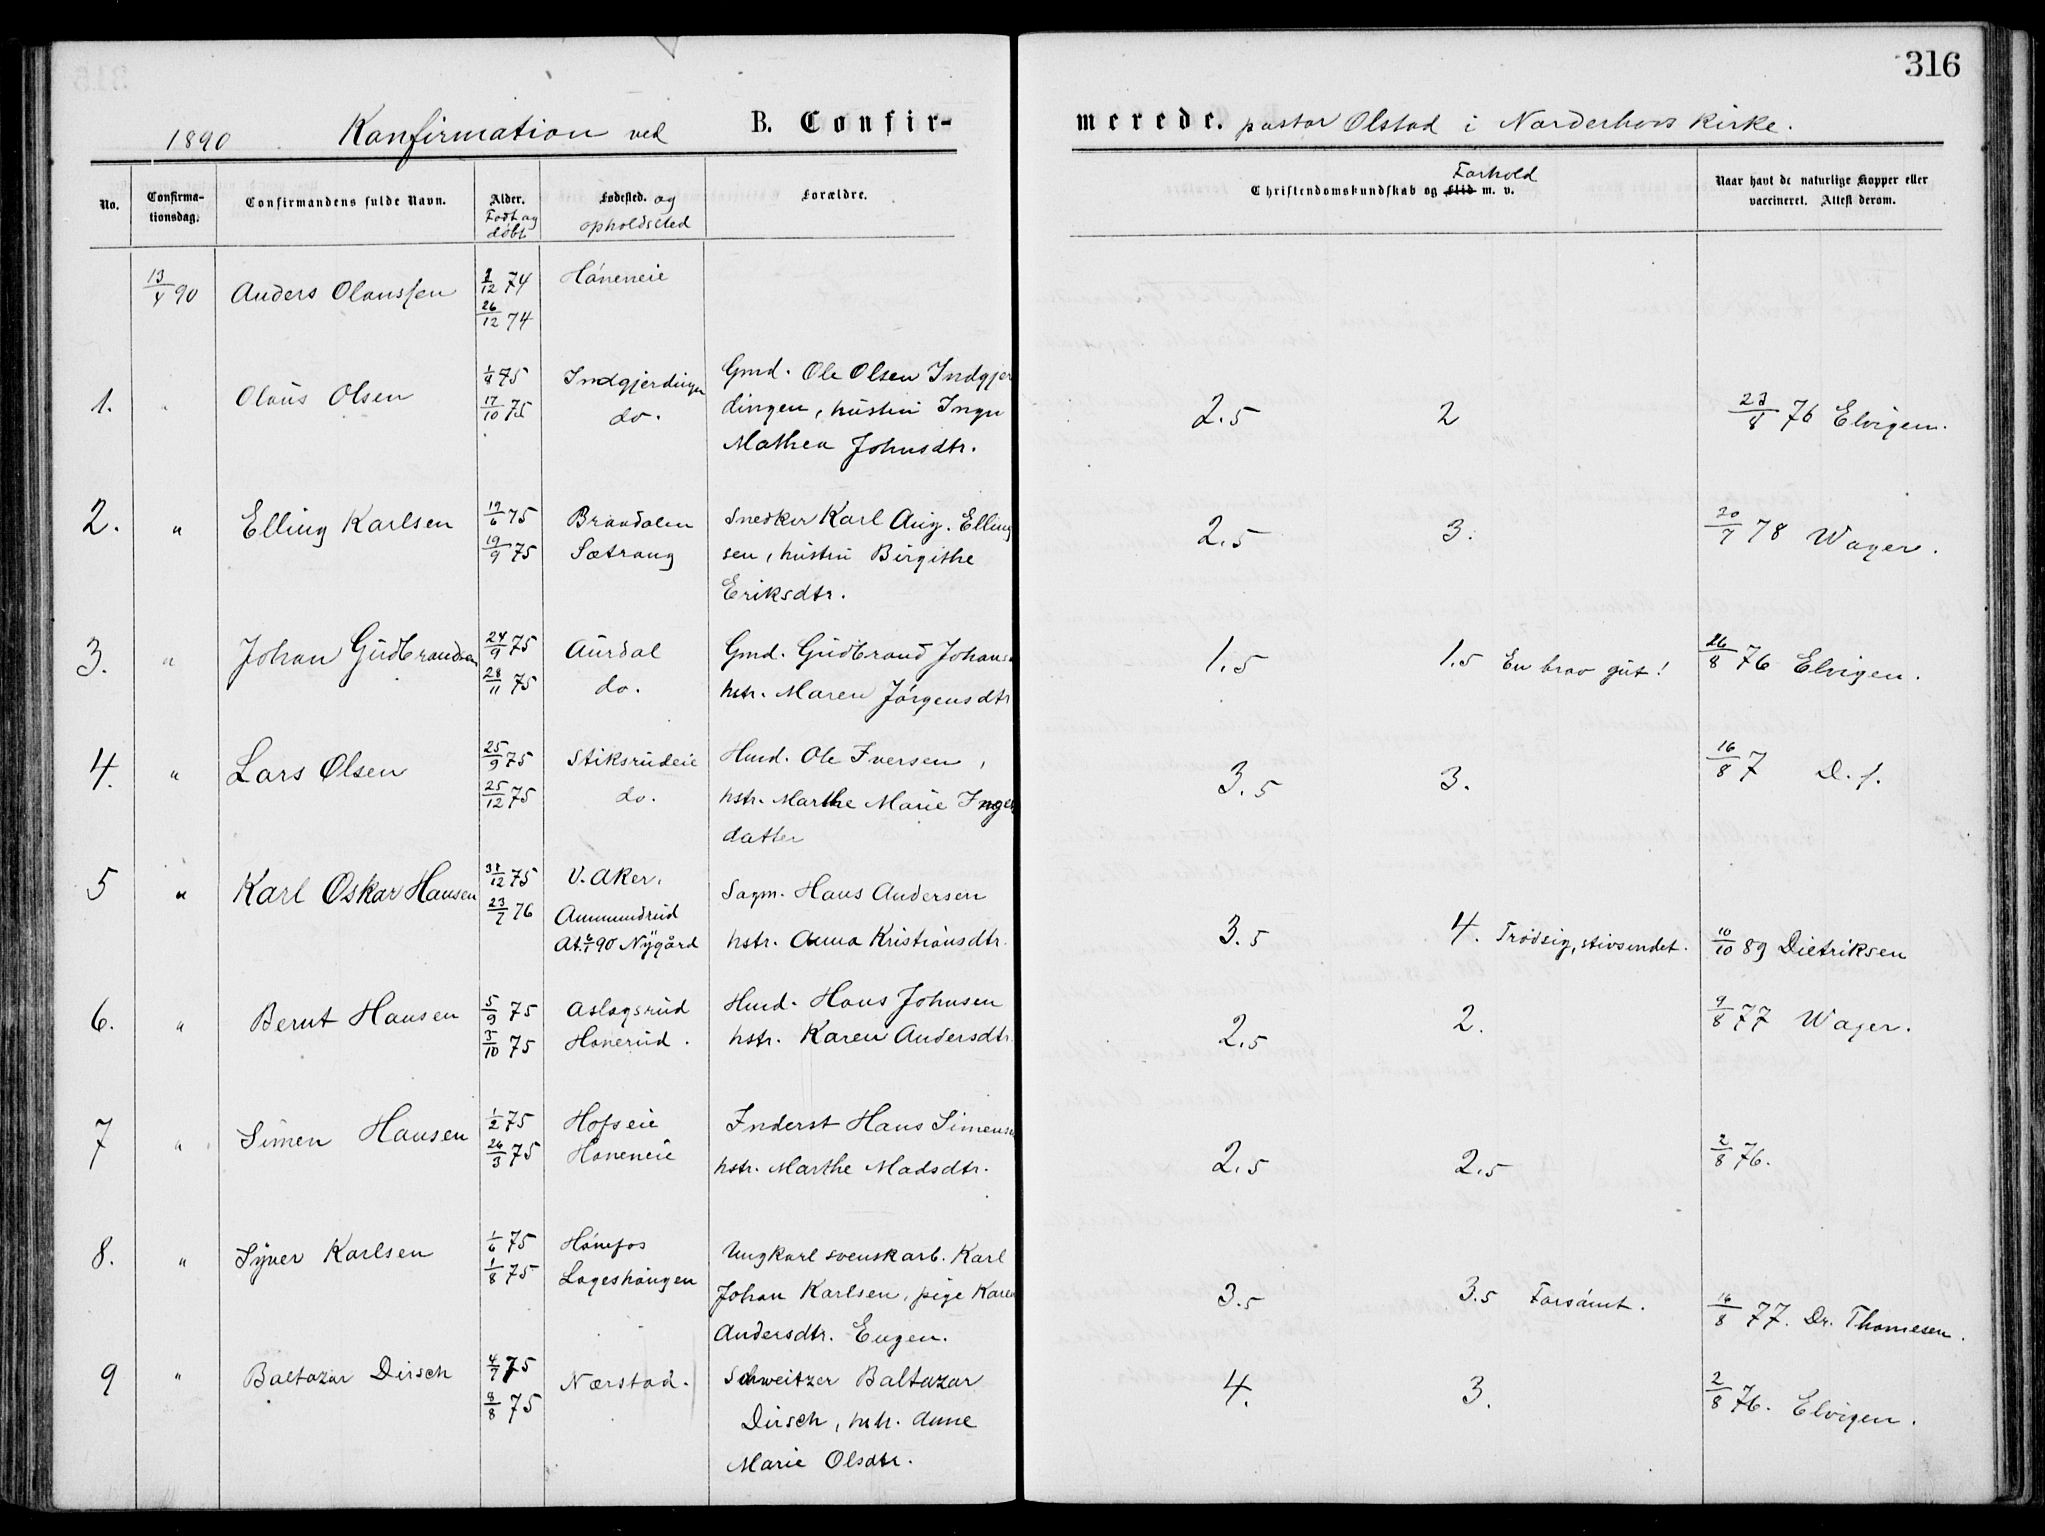 316
1890 Konfirmation ved B. Confir-
merede. pastor Olstad i Norderhovs kirke.
No.
Confirma-
tionsdag.
Confirmandens fulde Navn.
Alder.
Født og
døbt
Fødested. og
opholdssted
Forældre.
Forhold
Christendomskundskab og Flid m. v.
Naar havt de naturlige Kopper eller
vaccineret. Attest derom.
13/4 90 Anders Olaussen 1/12 74 Hóneneie
26/12 74
1. Olaus Olsen 1/9 75 Indgjerdingen Gmd. Ole Olsen Indgjer
17/10 75 do. dingen, hustru Ingn
Mathea Johnsdtr.
2.5 2 23/8 76 Elvigen.
2. " Elling Karlsen 19/6 75 Braadalen Snedker Karl Aug. Elling
19/9 75 Sætrang sen, hustru Birgithe
Eriksdtr.
2.5 3. 20/7 78 Wager.
3. " Johan Gudbrandsen 24/9 75 Aurdal Gmd. Gudbrand Johans
28/11 75 do. hstr. Maren Jórgensdtr
1.5 1.5 En brav gut! 26/8 76 Elvigen.
4. " Lars Olsen 25/9 75 Stiksrudeie Hmd. Ole Iversen,
25/12 75 do. hstr. Marthe Marie Inge
datter
3.5 3. 16/8 7 D. s.
5 " Karl Oskar Hansen 31/12 75 V. Aker. Sagm. Hans Andersen
23/7 76 Ammundrud
At. 6/1 90 Nygård hstr. Anna Kristiansdtr.
3.5 4. Trodsig, stivsendet. 10/10 89 Dietriksen
6. " Bernt Hansen 5/9 75 Aslagsrud Hmd. Hans Johnsen
3/10 75 Honerud. hstr. Karen Andersdtr.
2.5 2. 9/8 77 Wager.
7 " Simen Hansen 1/2 75 Hofseie Inderst Hans Simens
26/3 75 Honeneie hstr. Marthe Madsdtr.
2.5 2.5 2/8 76.
8. " Syver Karlsen 1/6 75 Hónefos Ungkarl svenskarb. Karl
1/8 75 Lageshaugen Johan Karlsen, pige Karen
Andersdtr. Engen.
3.5 3.5 Forsómt. 16/8 77. Dr. Thomesen.
9 " Baltazar Dirsch 4/7 75 Nærstad. Schweitzer Baltazar
8/8 75 Dirsch, hstr. Anne
Marie Olsdtr.
4. 3. 2/8 76. Elvigen.